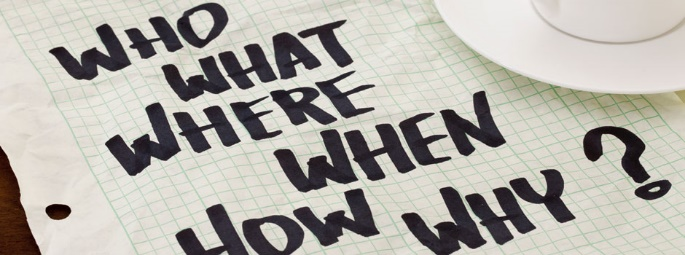 WHO
WHAT
WHERE
WHEN
HOW WHY ?